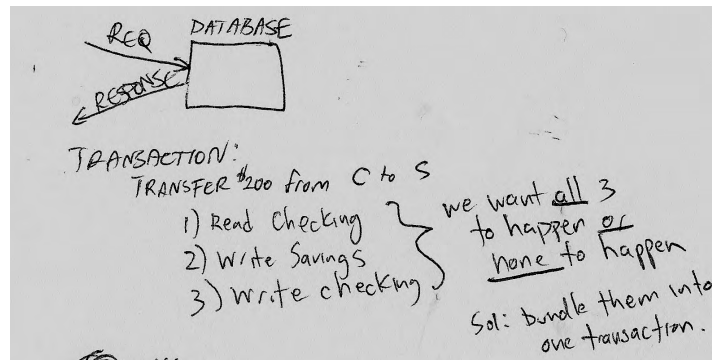 DATABASE
REQ
RESPONSE
TRANSACTION:
TRANSFER $200 from C to S
1) Read Checking
2) Write Savings
3) Write checking
we want all 3
to happen or
none to happen
Sol: bundle them into
one transaction.